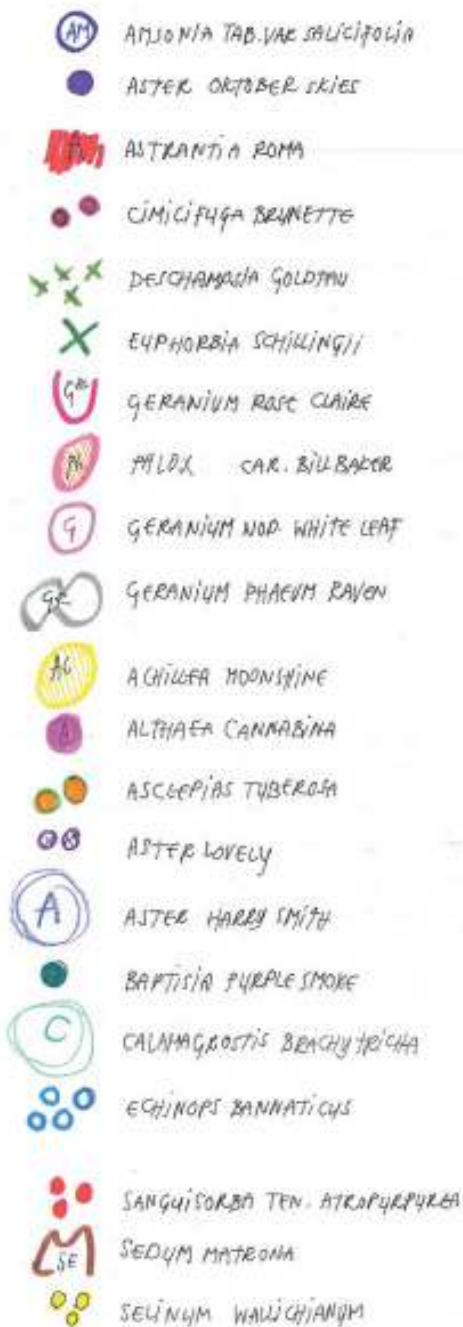 AM AMSONIA TAB. VAR SALICIFOLIA
ASTER OKTOBER SKIES
A ASTRANTIA ROMA
CIMICIFUGA BRUNETTE
DESCHAMASIA GOLDTAU
X EUPHORBIA SCHILLINGII
GRC GERANIUM ROSE CLAIRE
Ph PHLOX CAR. BILL BAKER
G GERANIUM NOD. WHITE LEAF
GR GERANIUM PHAEUM RAVEN
AC ACHILLEA MOONSHINE
A ALTHAEA CANNABINA
ASCLEPIAS TUBEROSA
ASTER LOVELY
A ASTER HARRY SMITH
BAPTISIA PURPLE SMOKE
C CALAMAGROSTIS BRACHYTRICHA
ECHINOPS BANNATICUS
SANGUISORBA TEN. ATROPURPUREA
SE SEDUM MATRONA
SELINUM WALLICHIANUM